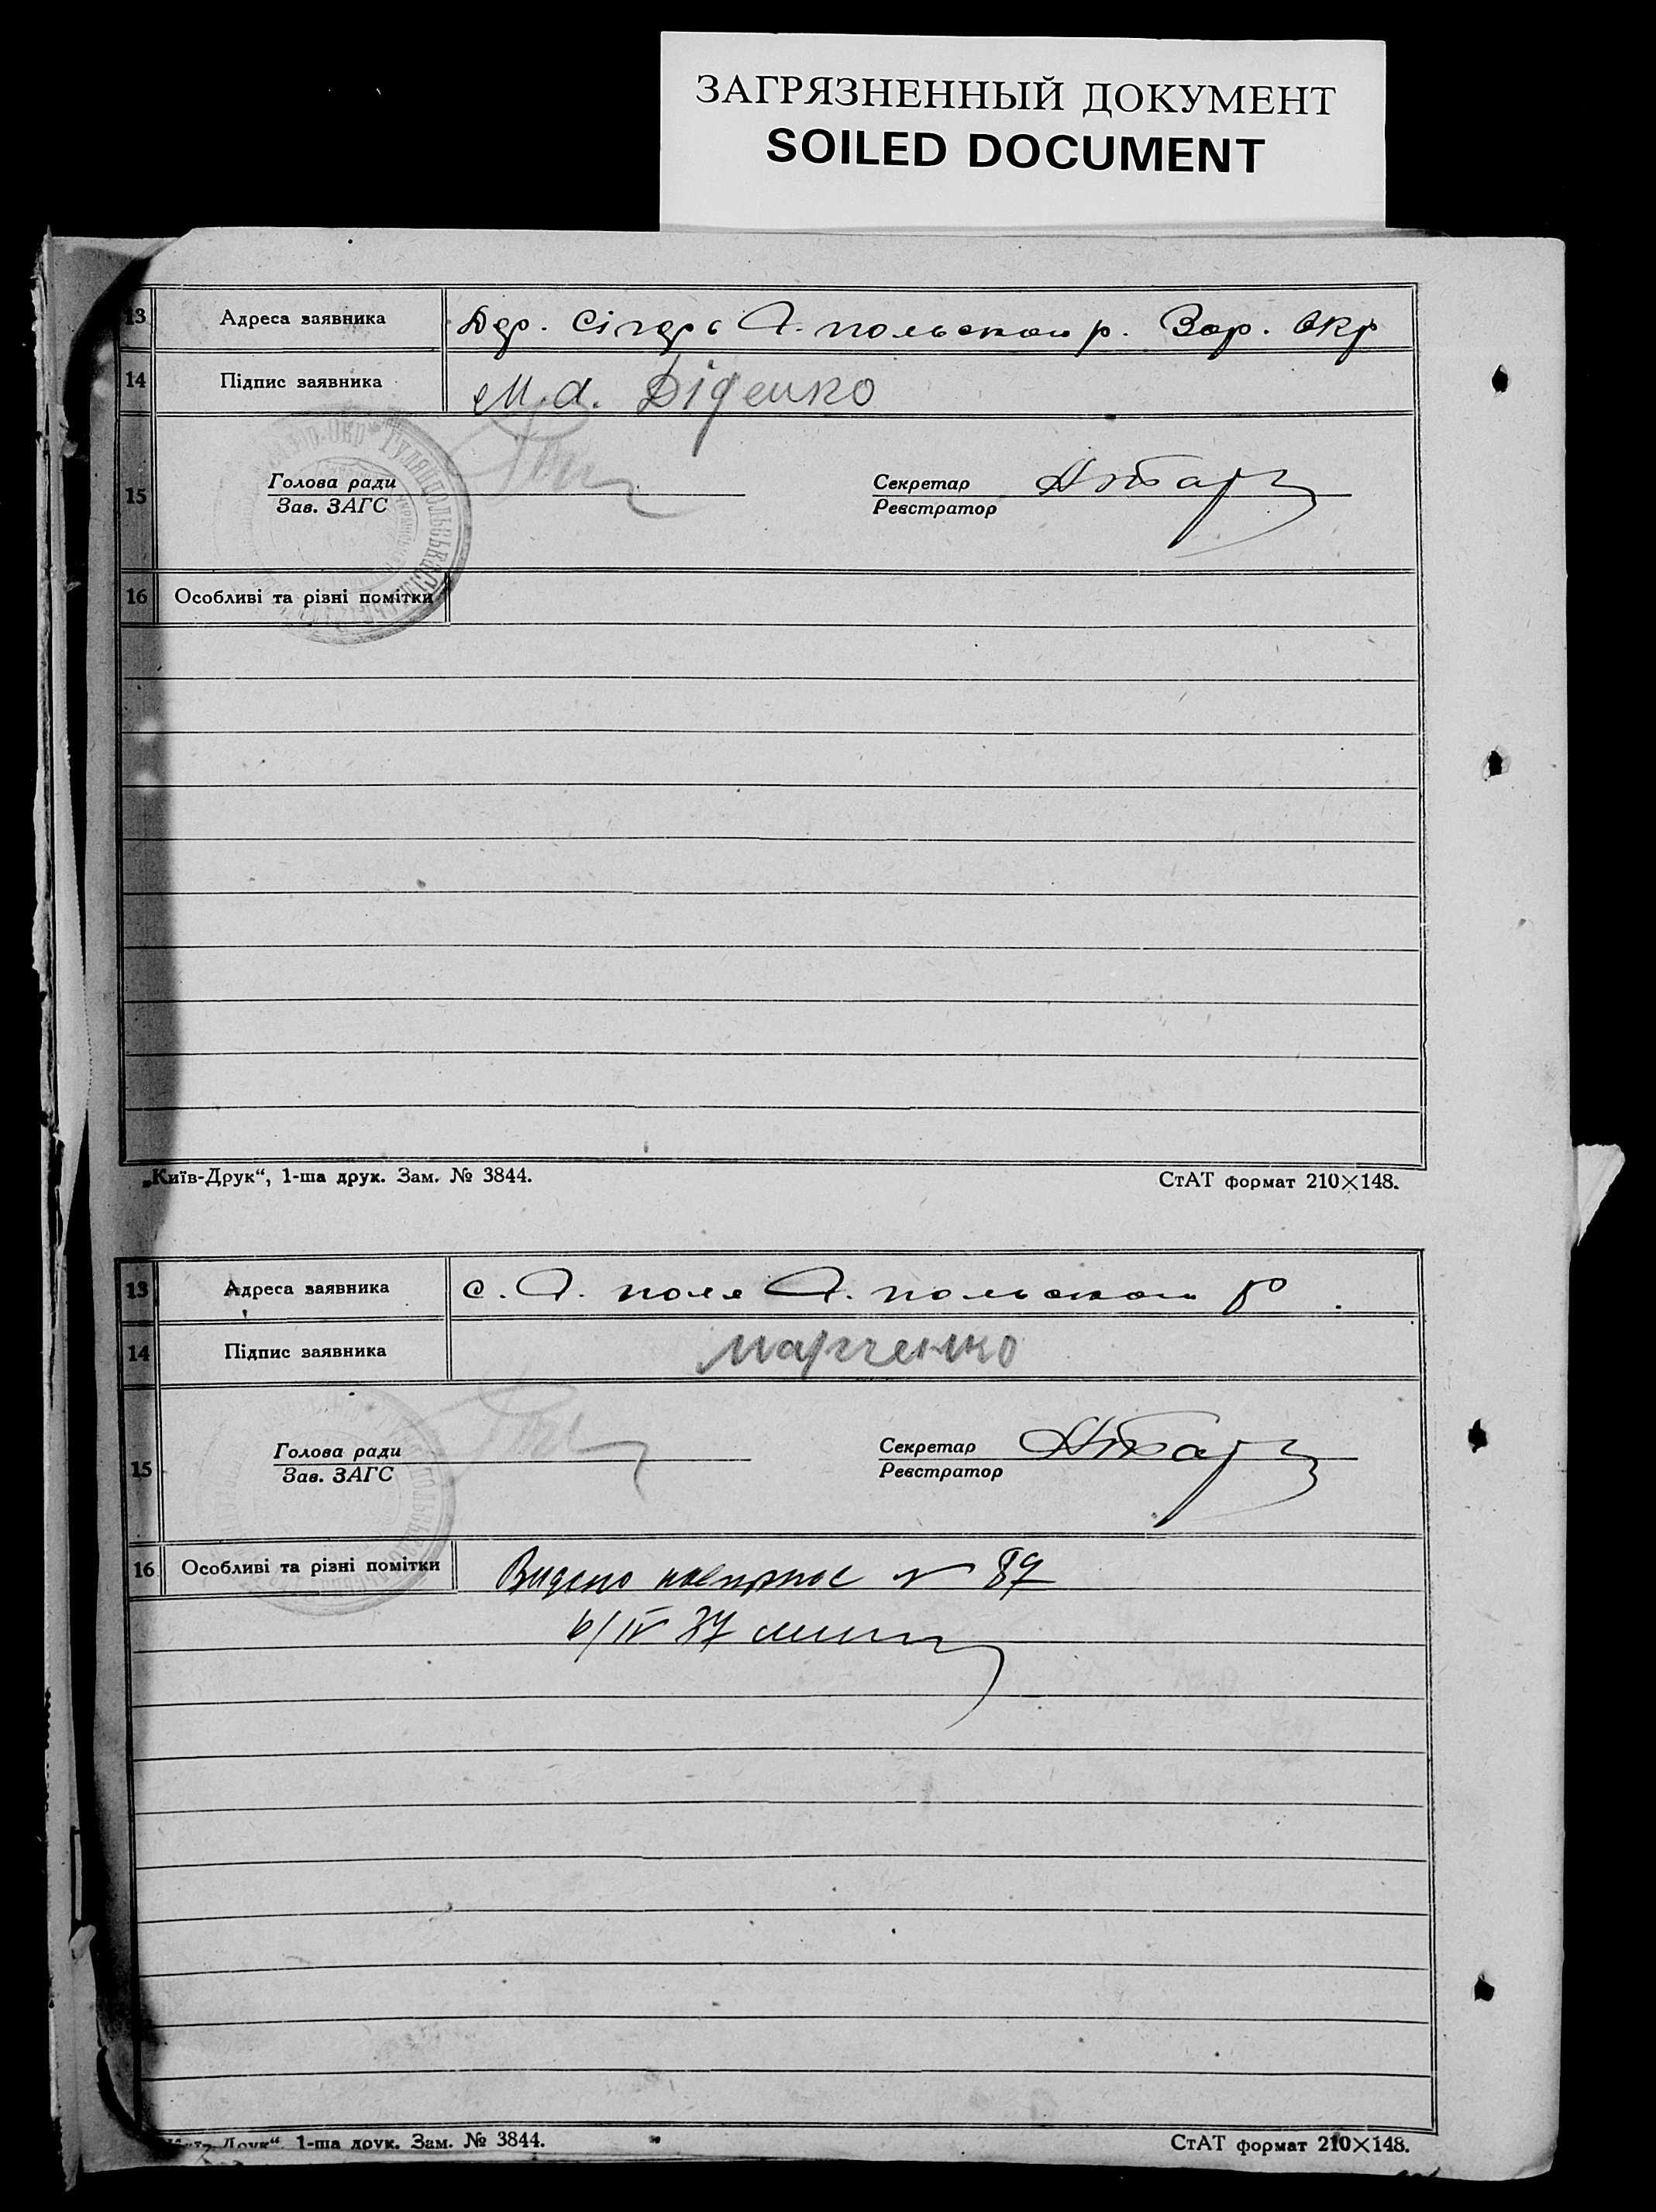 ЗАГРЯЗНЕННЫЙ ДОКУМЕНТ
SOILED DOCUMENT
13 Адреса заявника р. Зап. Окр
14 Підпис заявника М. А. Діденко
15 Голова ради
Зав. ЗАГС
Секретар
Реєстратор
16 Особливі та різні помітки
„Київ-Друк“, 1-ша друк. Зам. № 3844.
СтАТ формат 210×148.
13 Адреса заявника с. Г. поле Г. польского р
14 Підпис заявника Марченко
15 Голова ради
Зав. ЗАГС
Секретар
Реєстратор
16 Особливі та різні помітки Видано № 89
6/IV 37
Друк“, 1-ша друк. Зам. № 3844.
СтАТ формат 210×148.